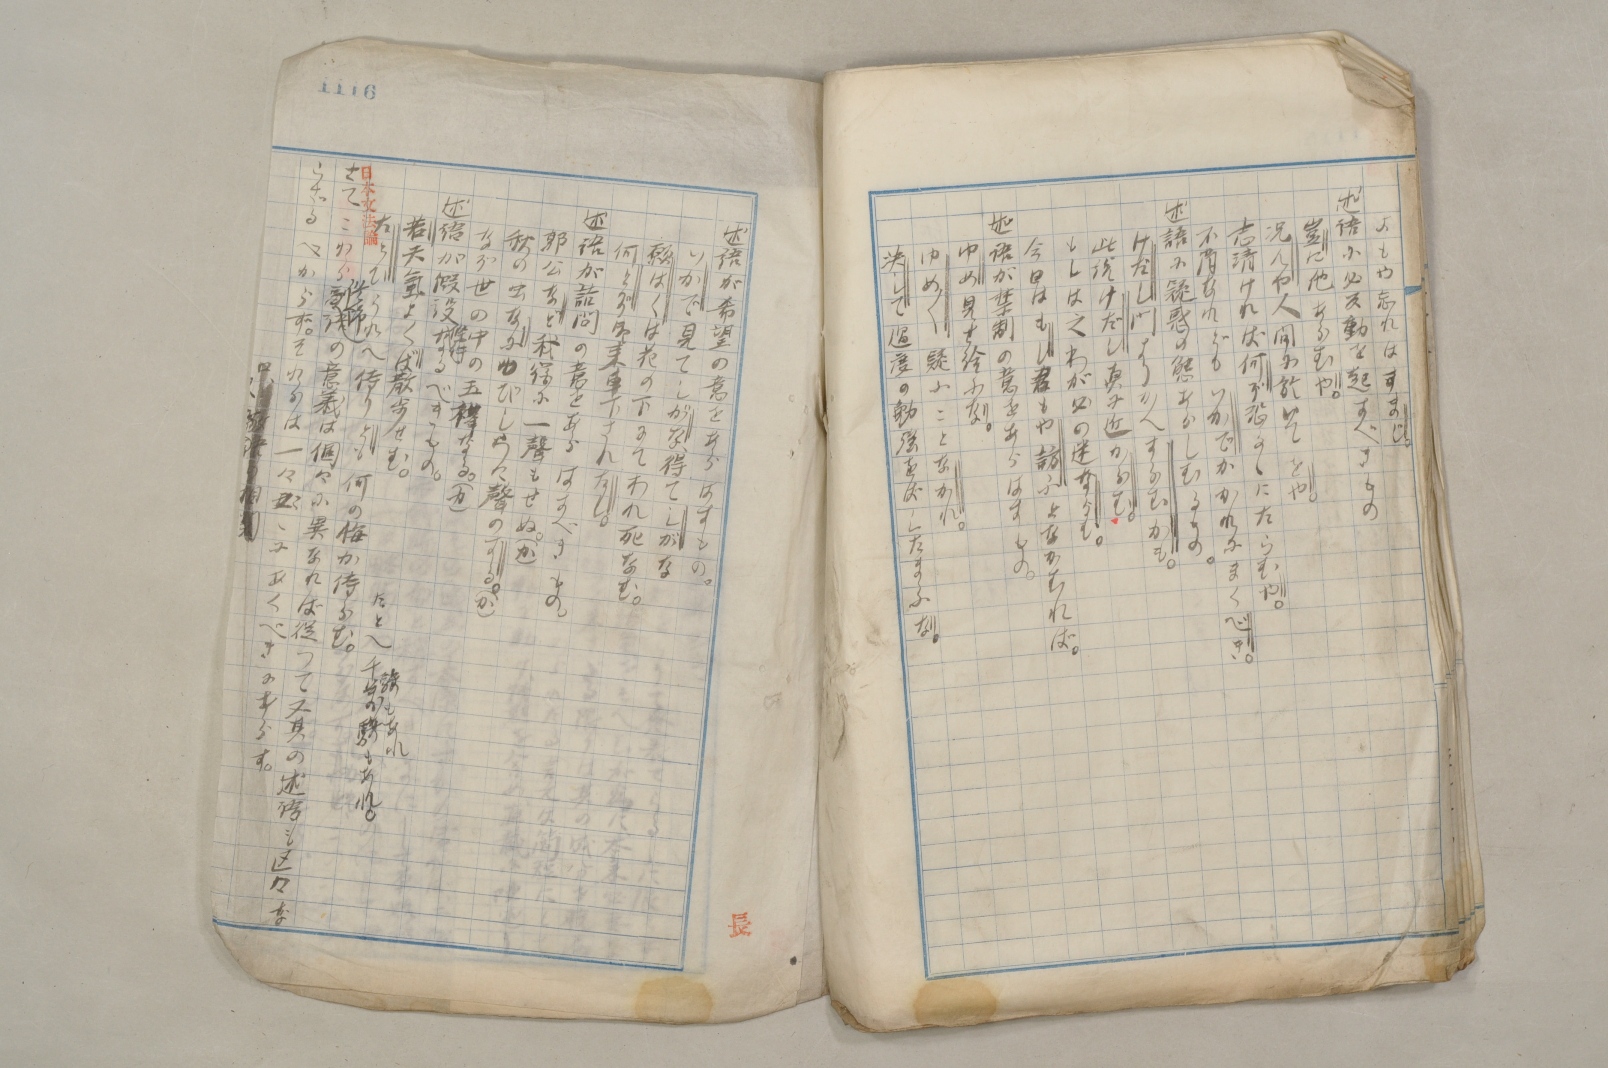 よもや忘れはすまじ。
述語に必ず反動を起すべきもの
豈に他あらむや。
況んや人間に於いてをや。
志清ければ何ぞ恐るゝにたらむや。
不肖なれどもいかでかかれにまくべき。
述語に疑惑の態あらしむるもの。
けだし門よりかへすらむかも。
此説けだし真に近からむ。
もしは之わが心の迷ならむ。
今日はもし君もや訪ふとながむれば。
述語が禁制の意をあらはすもの。
ゆめ見せ給ふな。
ゆめ〱疑ふことなかれ。
決して過度の勉強をばしたまふな。
述語が希望の意をあらはすもの。
いかで見てしがな得てしがな
願はくは花の下にてわれ死なむ。
何とぞ御乗車下されたし。
述語が詰問の意をあらはすべきもの。
郭公など我宿に一聲もせぬ。(か)
秋の虫など わびしらに聲のする。(か)
などか世の中の玉襷なる。(か)
述語が假設性を帯ぶるべきもの。
若天氣よくば散歩せむ。
たとひうれへ侍りとも何の悔か侍らむ。
たとへ千年の齢もあれ。
1116
日本文法論
さてこれら副詞の意義は個々に異なれば従つて又其の述語も区々な
らざるべからず。それらは一々こゝにあぐべきにあらず。
長